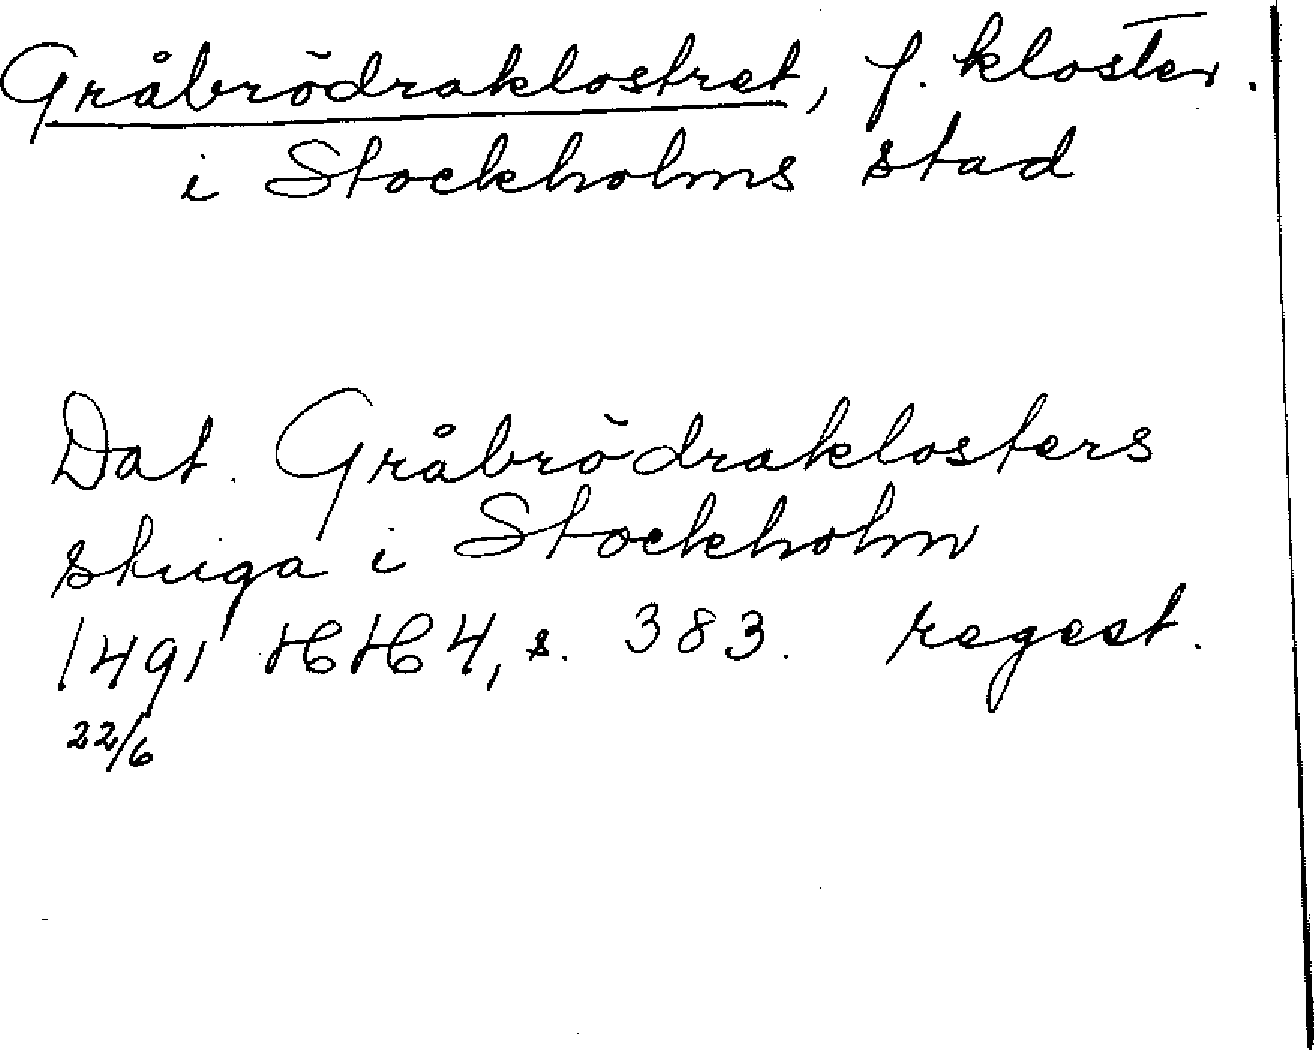 Gråbrödraklostret, f. kloster.
i Stockholms stad
Dat. Gråbrödraklosters
stuga i Stockholm
1491 HH 4, s. 383. regest.
22/6